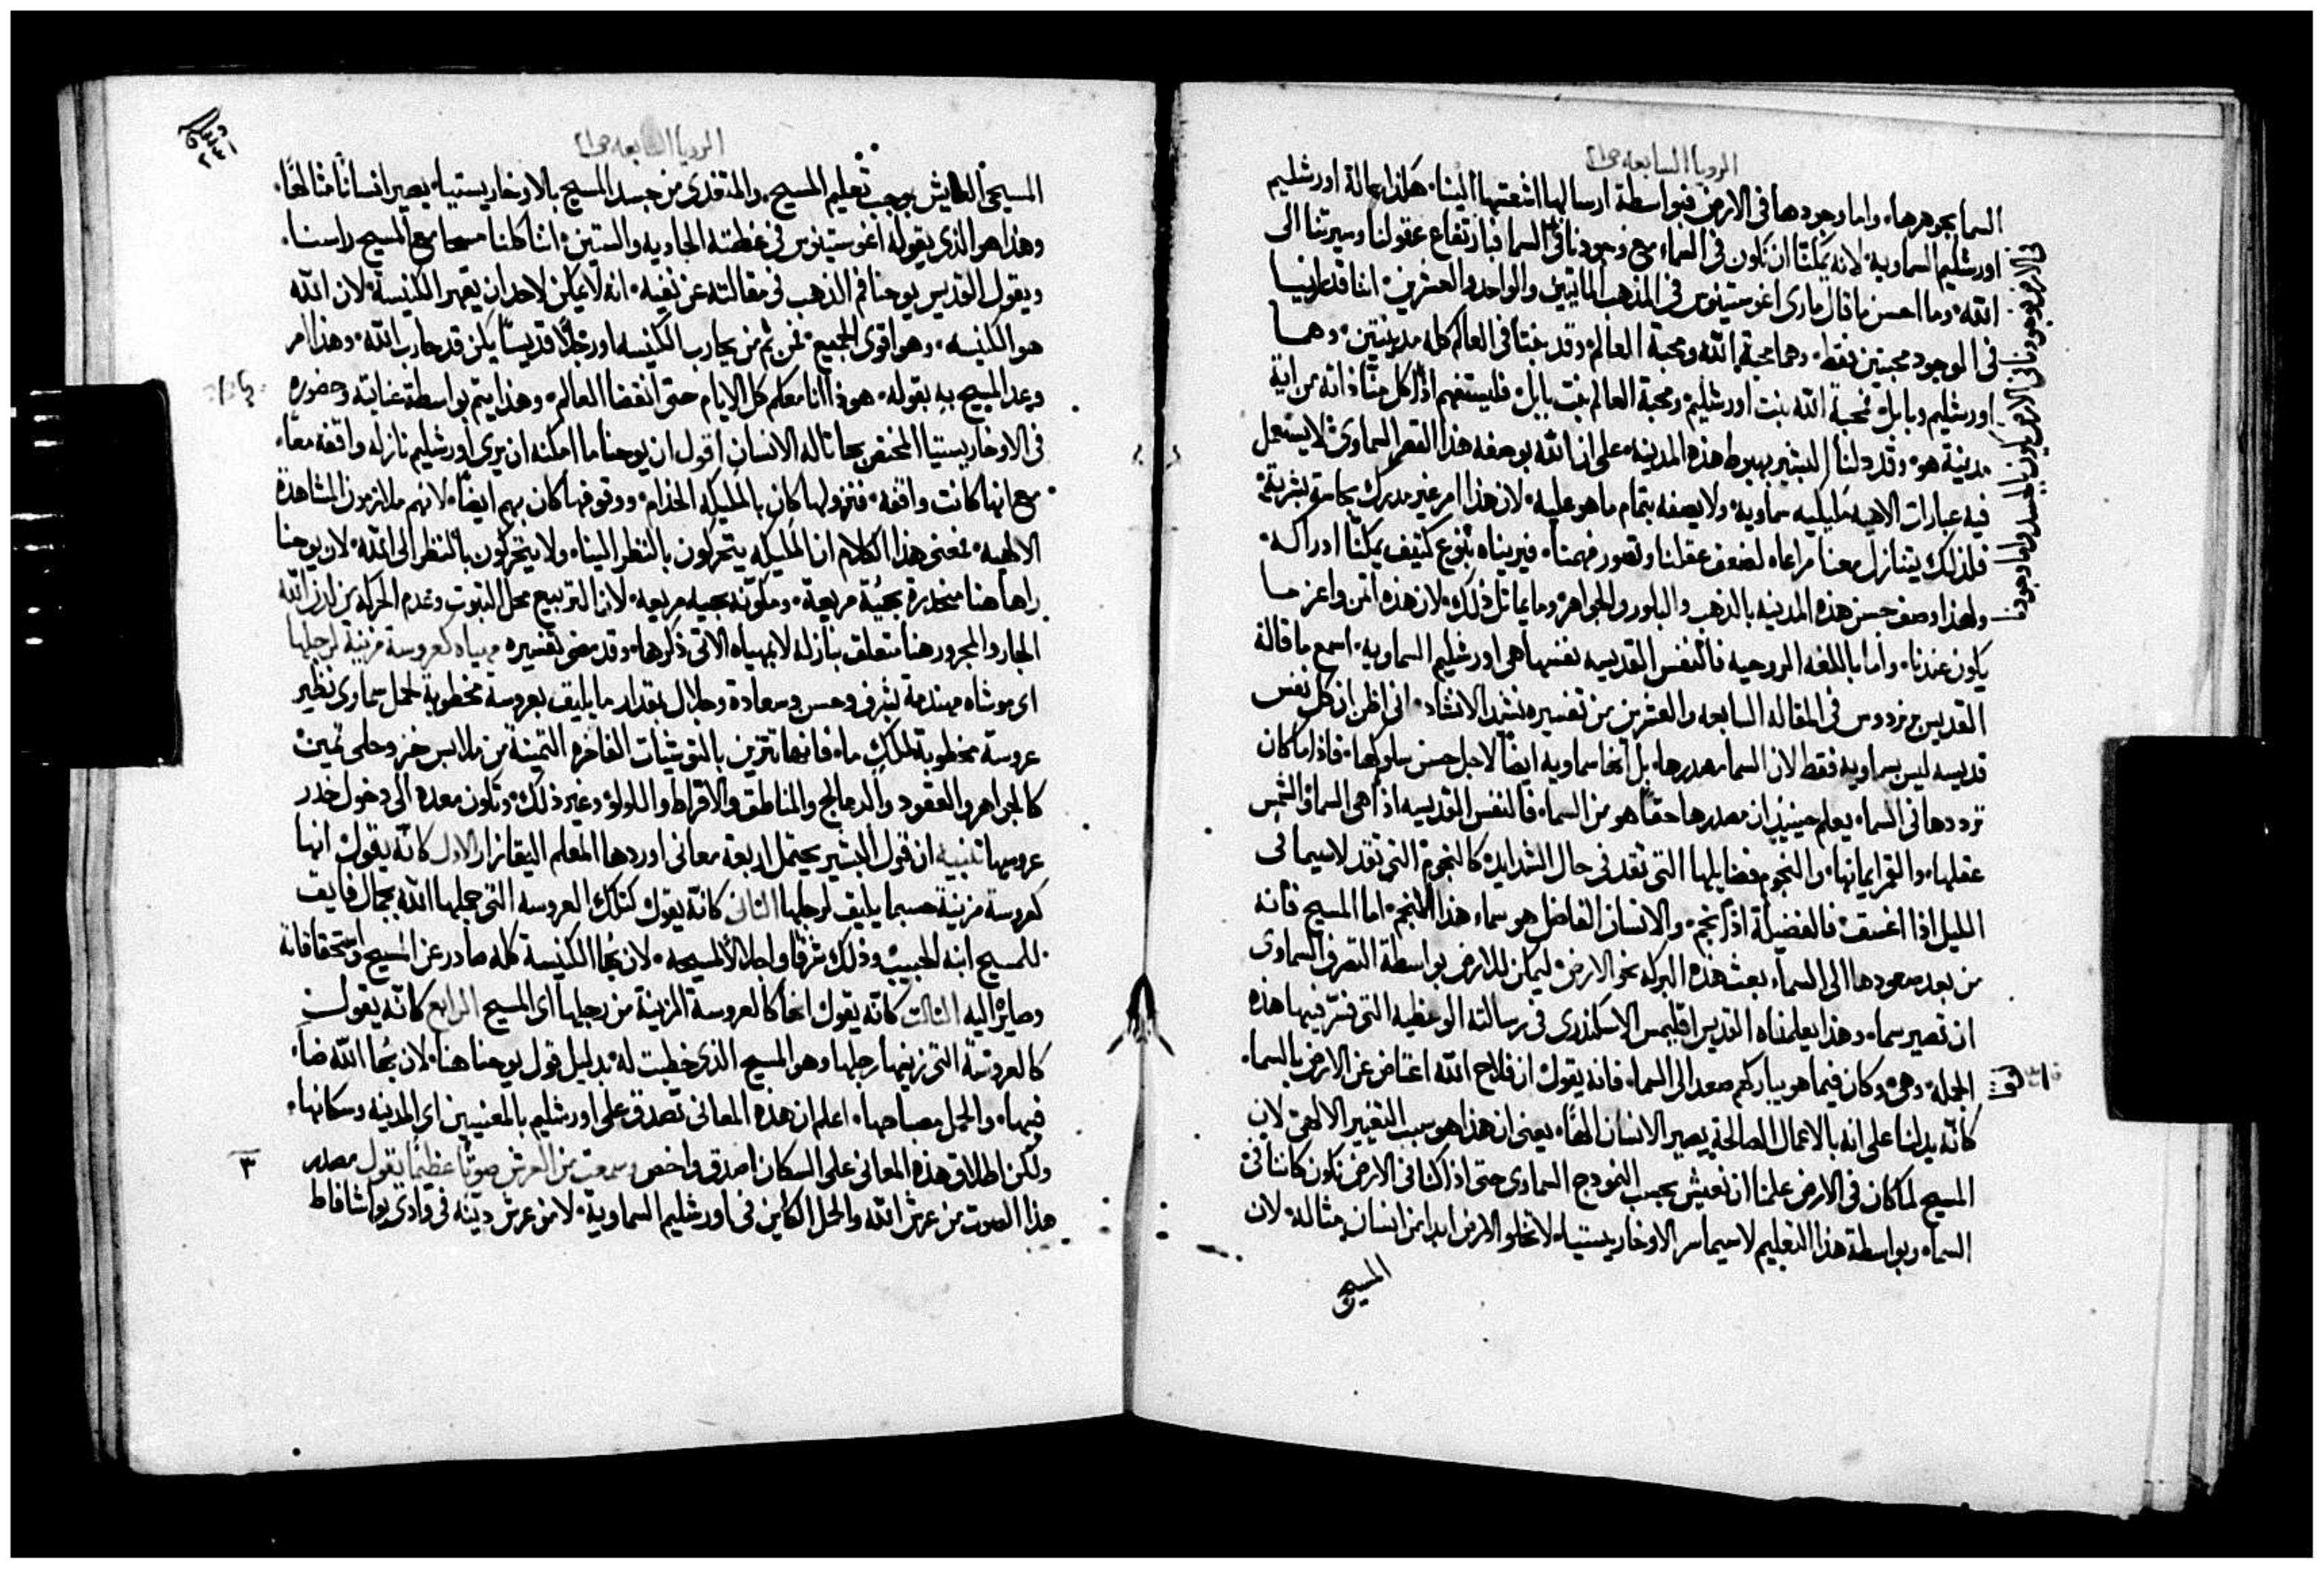 الرويا السابعه ص٢١
السما بجوهرها، واما وجودها في الارض فبواسطة ارسالها اشعتها الينا، هكذا بحالة اورشليم
اورشليم السماويه، لانه يمكنّا ان نكون في السماء مع وجودنا في السما فبارتفاع عقولنا وسيرتنا الى
الله، وما احسن ما قال ماري اغوستينوس في المذهب الماتيين والواحد والعشرين، اننا قد
في الموجود محبتين فقط، وهما محبة الله ومحبة العالم، وقد بنتا في العالم كله مدينتين، وهما
اورشليم وبابل، فمحبة الله بنت اورشليم، ومحبة العالم بنت بابل، فليستفهم اذًا كل منّا ذاته من اية
مدينة هو، وقد دلنا البشير بهبوط هذه المدينه، على ان الله بوصفه هذا القصر السماوي، لا يستعمل
فيه عبارات الاهيه مليليه سماويه، ولا يصفه بتمام ما هو عليه، لان هذا امر غير مدرك بحاسة بشرية،
فلذلك يتنازل معنا مراعاه لضعف عقلنا وقصور فهمنا، فيريناه بنوع كثيف يمكنّا ادراكه،
ولهذا وصف حسن هذه المدينه بالذهب والبلور والجواهر وما يماثل ذلك، لان هذه اثمن واعز ما
يكون عندنا، واما باللغه الروحيه فالنفس القديسه نفسها هي اورشليم السماويه، اسمع ما قاله
القديس برنردوس في المقاله السابعه والعشرين من تفسيره نشيد الانشاد، اني اظن ان كل نفس
قديسه ليس سماويه فقط لان السما مصدرها، بل انها سماويه ايضًا لاجل حسن سلوكها، فاذا ما كان
ترددها في السما، يعلم حينيذٍ ان مصدرها حقًا هو من السماء، فالنفس القديسه اذًا هي السما، والشمس
عقلها، والقمر ايمانها، والنجوم فضايلها التي تقد في حال الشدايد، كالنجوم التي تقد لاسيما في
الليل اذا اغسق، فالفضيلة اذًا نجم، والانسان الفاضل هو سماء هذا النجم، اما المسيح فانه
من بعد صعودها الى السما، بعث هذه البركه نحو الارض، ليمكن للارض بواسطة التصرف السماوي
ان تصير سماء، وهذا يعلمناه القديس اقليمس الاسكندري في رسالته الوعظيه التي فسّر فيها هذه
الجمله، وهي، وكان فيما هو يباركهم صعد الى السما، فانه يقول ان فلاح الله اعتاض عن الارض بالسما،
كانّه يدلنا على انه بالاعمال الصالحة يصير الانسان الهًا، يعني ان هذا هو سبب التغيير الالهي، لان
المسيح لما كان في الارض علمنا ان نعيش بحسب النموذج السماوي، حتى اذا كنا في الارض نكون كاننا في
السما، وبواسطة هذا التعليم لاسيما سر الاوخاريستيا، لا تخلو الارض ابدًا من انسان متاله، لان
المسيحي
الرويا السابعه ص٢١
المسيحي العايش بموجب تعليم المسيح، والمتغذي من جسد المسيح بالاوخاريستيا، يصير انسانًا متالهًا،
وهذا هو الذي يقوله اغوستينوس في عظته الحاديه والستين، اننا كلنا مسحا مع المسيح راسنا،
ويقول القديس يوحنا فم الذهب في مقالته عن نفيه، انه لا يمكن لاحد ان يقهر الكنيسة، لان الله
هو الكنيسه، وهو اقوى الجميع، فمن ثم من يحارب الكنيسه او رجلًا قديسًا يكن قد حارب الله، وهذا امر
وعد المسيح به بقوله، هوذا انا معكم كل الايام حتى انقضا العالم، وهذا يتم بواسطة عنايته وحضوره
في الاوخاريستيا المختص بحاناله الانسان، اقول ان يوحنا ما امكنه ان يرى اورشليم نازله واقفه معًا،
مع انها كانت واقفه، فنزولها كان بالمليكه الخدام، ووقوفها كان بهم ايضًا، لانهم ملازمون المشاهدة
الالهيه، فمعنى هذا الكلام ان المليكه يتحركون بالنظر الينا، ولا يتحركون بالنظر الى الله، لان يوحنا
راها هنا منحدرة بهيئة مربعة، ومكوّنه بهيه مربعه، لان التربيع محل الثبوت وعدم الحركه من لدن الله
الجار والمجرور هنا متعلق بنازله لا بمهياه الاتي ذكرها، وقد مضى تفسيره مهياه كعروسة مزينة لرجلها
اي موشاه مهندمة بشرف وحسن وسعادة وجلال بمقدار ما يليق بعروسة مخطوبة لحمل سماوي نظير
عروسة مخطوبة لملكٍ ما، فانها تتزين بالتوشيات الفاخره الثمينة من ملابس خز وحلي ثمين،
كالجواهر والعقود والدمالج والمناطق والاقراط واللولو وغير ذلك، وتكون معده الى دخول خدر
عروسها تنبيه ان قول البشير يحتمل اربعة معاني اوردها المعلم اليقازار الاول كانّه يقول انها
كعروسة مزينة حسبما يليق لرجلها الثاني كانّه يقول كتلك العروسه التي جملها الله بجمال فايق
للمسيح ابنه الحبيب، وذلك شرفًا واجلالًا لمسيحه، لان بها الكنيسة كله صادر عن المسيح واستحقاقاته
وصايرٌ اليه الثالث كانّه يقول انها كالعروسة المزينة من رجلها اي المسيح الرابع كانه يقول
كالعروسة التي زينها رجلها وهو المسيح الذي خطبت له، بدليل قول يوحنا هنا، لان بها الله ضاء
فيها، والحمل مصباحها، اعلم ان هذه المعاني تصدق على اورشليم بالمعنيين اي المدينه وسكانها،
ولكن اطلاق هذه المعاني على السكان اصدق واخص وسمعت من العرش صوتًا عظيمًا يقول مصدر
٣
هذا الصوت من عرش الله والحمل الكاين في اورشليم السماوية، لا من عرش دينه في وادي يواشافاط